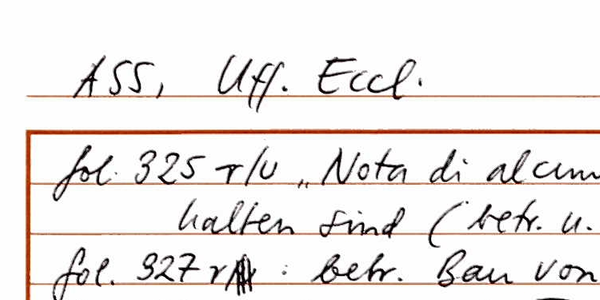 ASS, Uff. Eccl.
fol. 325 r/v „Nota di alcun
halten sind (betr. u.
fol. 327 r : betr. Bau von